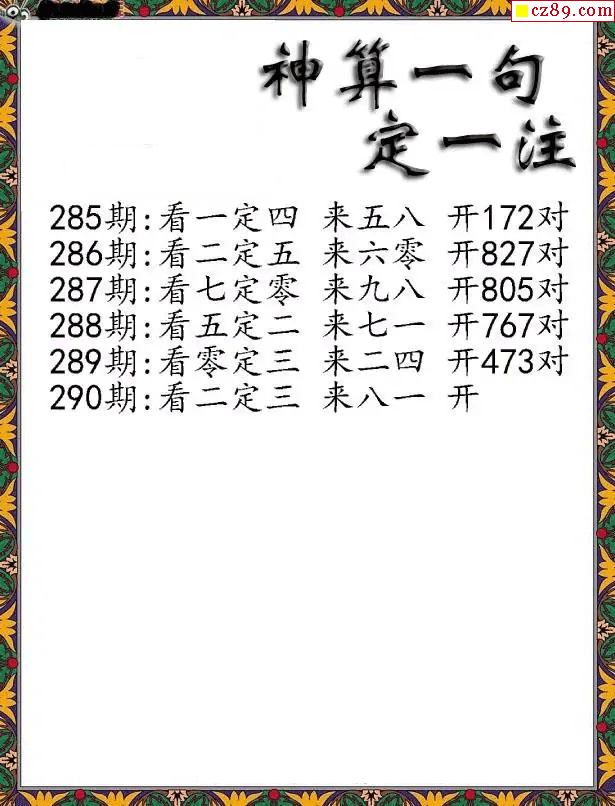 cz89.com
神算一句
定一注
285期:看一定四 来五八 开172对
286期:看二定五 来六零 开827对
287期:看七定零 来九八 开805对
288期:看五定二 来七一 开767对
289期:看零定三 来二四 开473对
290期:看二定三 来八一 开